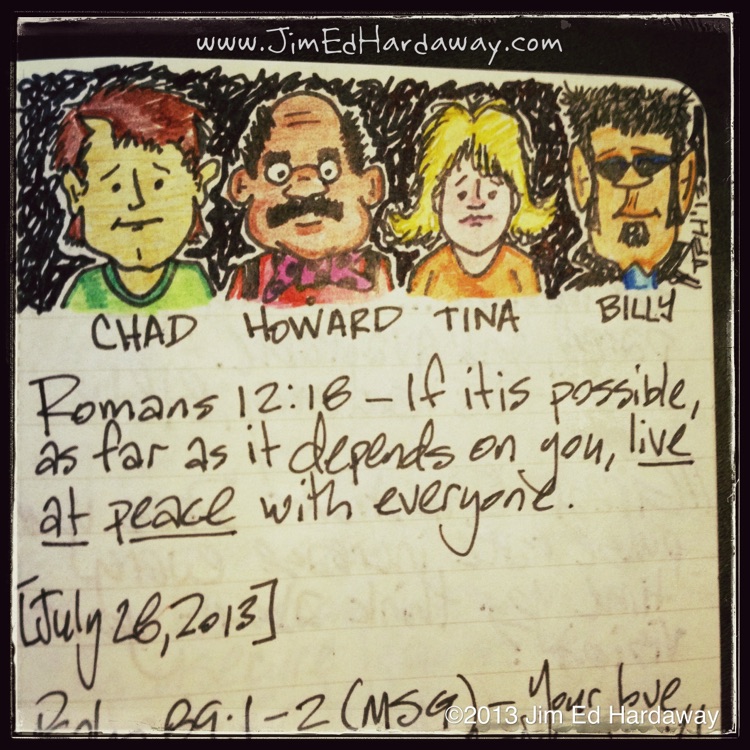 www.JimEdHardaway.com
CHAD HOWARD TINA BILLY
Romans 12:18 – If it is possible,
as far as it depends on you, live
at peace with everyone.
[July 28, 2013]
89:1-2 (MSG) Your love
©2013 Jim Ed Hardaway